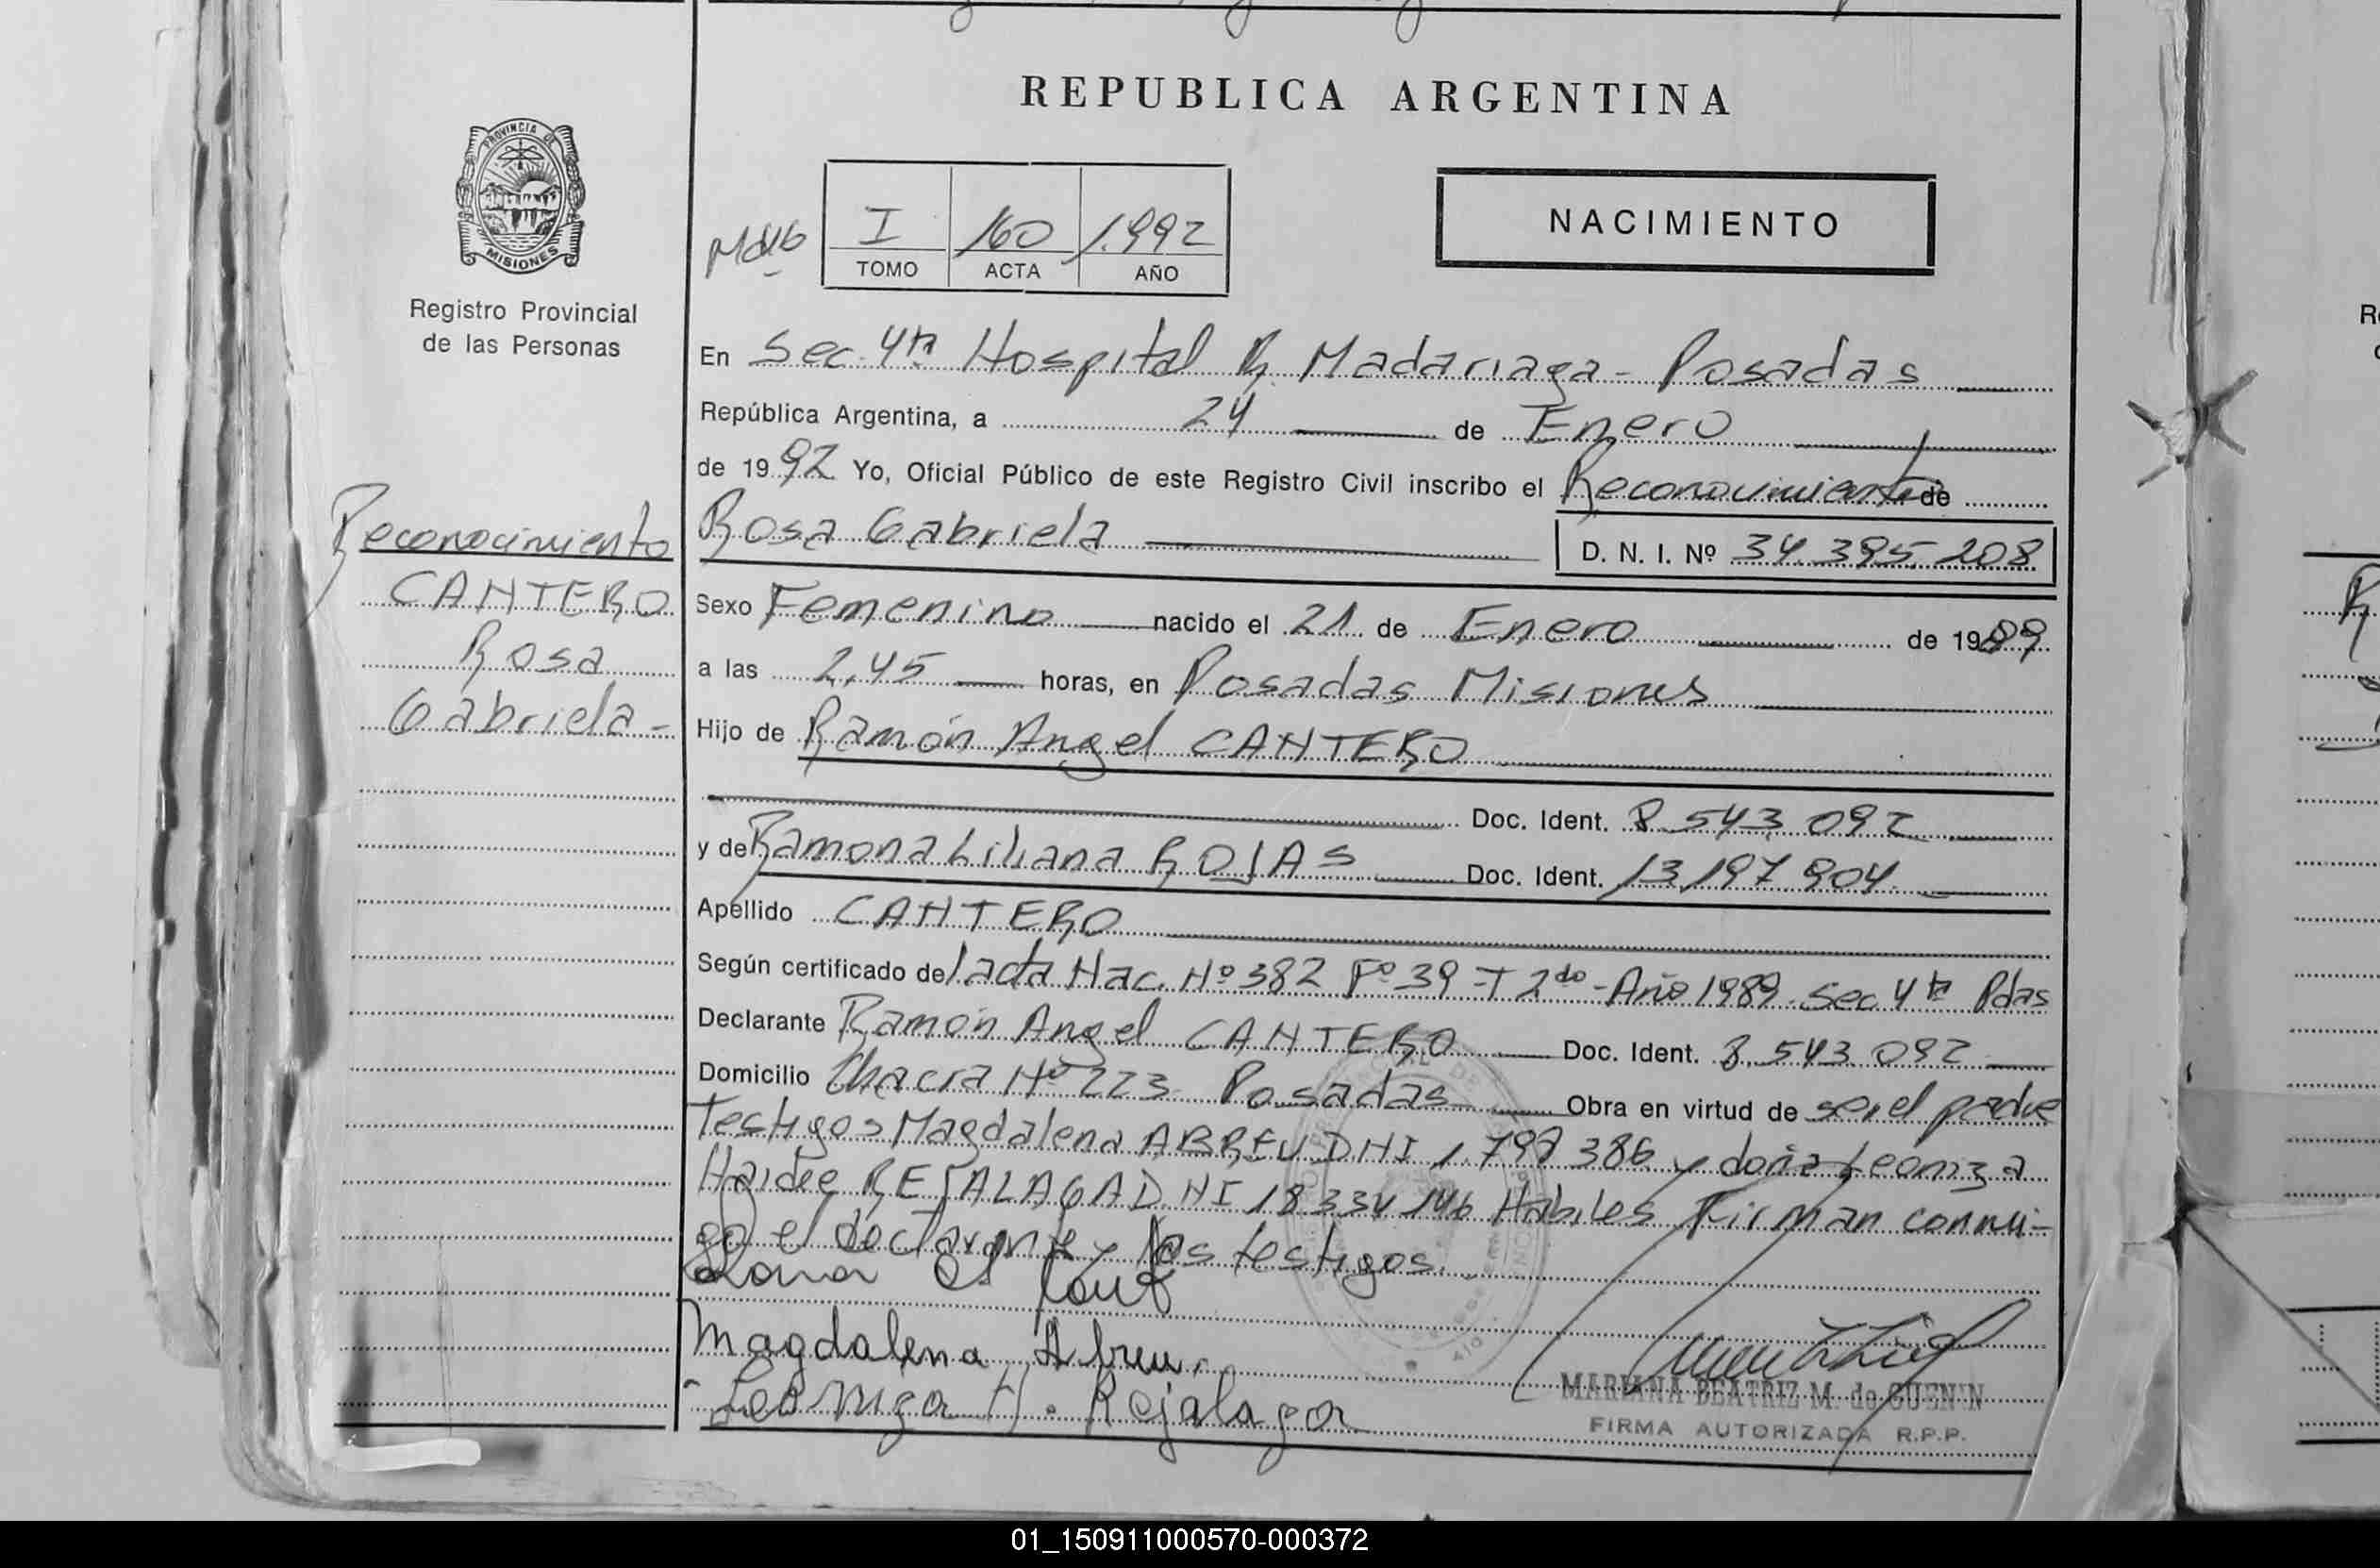 REPUBLICA ARGENTINA
PROVINCIA DE
MISIONES
Registro Provincial
de las Personas
I 160 1.992
TOMO ACTA AÑO
NACIMIENTO
En Sec. 4ta Hospital R. Madariaga - Posadas
República Argentina, a 24 de Enero
de 1992 Yo, Oficial Público de este Registro Civil inscribo el Reconocimiento de
Rosa Gabriela D. N. I. Nº 34.395.208
Reconocimiento
CANTERO
Rosa
Gabriela -
Sexo Femenino nacido el 21 de Enero de 1989
a las 2,45 horas, en Posadas Misiones
Hijo de Ramón Angel CANTERO
Doc. Ident. 8.543.092
y de Ramona Liliana ROJAS Doc. Ident. 13.197.904
Apellido CANTERO
Según certificado de l.acta Nac. Nº 382 Fº 39 - T 2do - Año 1989. Sec 4ta Pdas
Declarante Ramón Angel CANTERO Doc. Ident. 8.543.092
Domicilio Chacra Nº 223 Posadas Obra en virtud de ser el padre
Testigos Magdalena ABREU DNI 1.798.386 y doña Leoniza
Haidee REJALAGA D.NI 18.334.146 Hábiles Firman conmi-
go el declarante y los testigos.
Magdalena Abreu.
Leoniza H. Rejalaga
MARIANA BEATRIZ M. de GUENIN
FIRMA AUTORIZADA R.P.P.
01_150911000570-000372